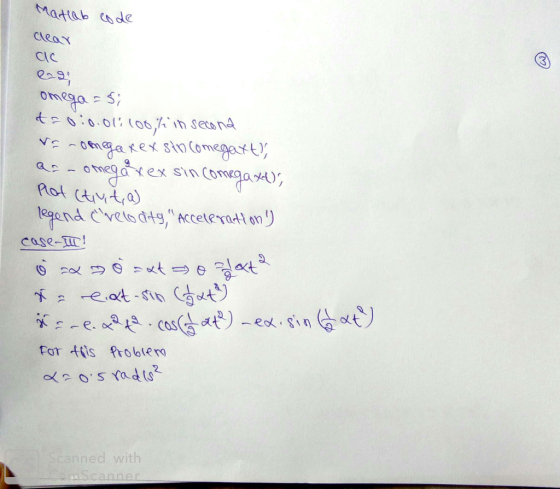 Matlab code
clear
clc
③
e=2;
omega = 5;
t = 0:0.01:100,% in second
v= -omega×e× sin(omega×t);
a= - omega²×e× sin(omega×t);
Plot (t,v,t,a)
legend ('velocity,''Acceleration')
case-III!
θ̈ =α ⇒ θ̇ =αt ⇒ θ = 1/2 αt²
ẋ = -e.αt.sin (1/2 αt²)
ẍ = -e. α²t² . cos(1/2 αt²) -eα. sin (1/2 αt²)
For this problem
α= 0.5 rad/s²
Scanned with
CamScanner